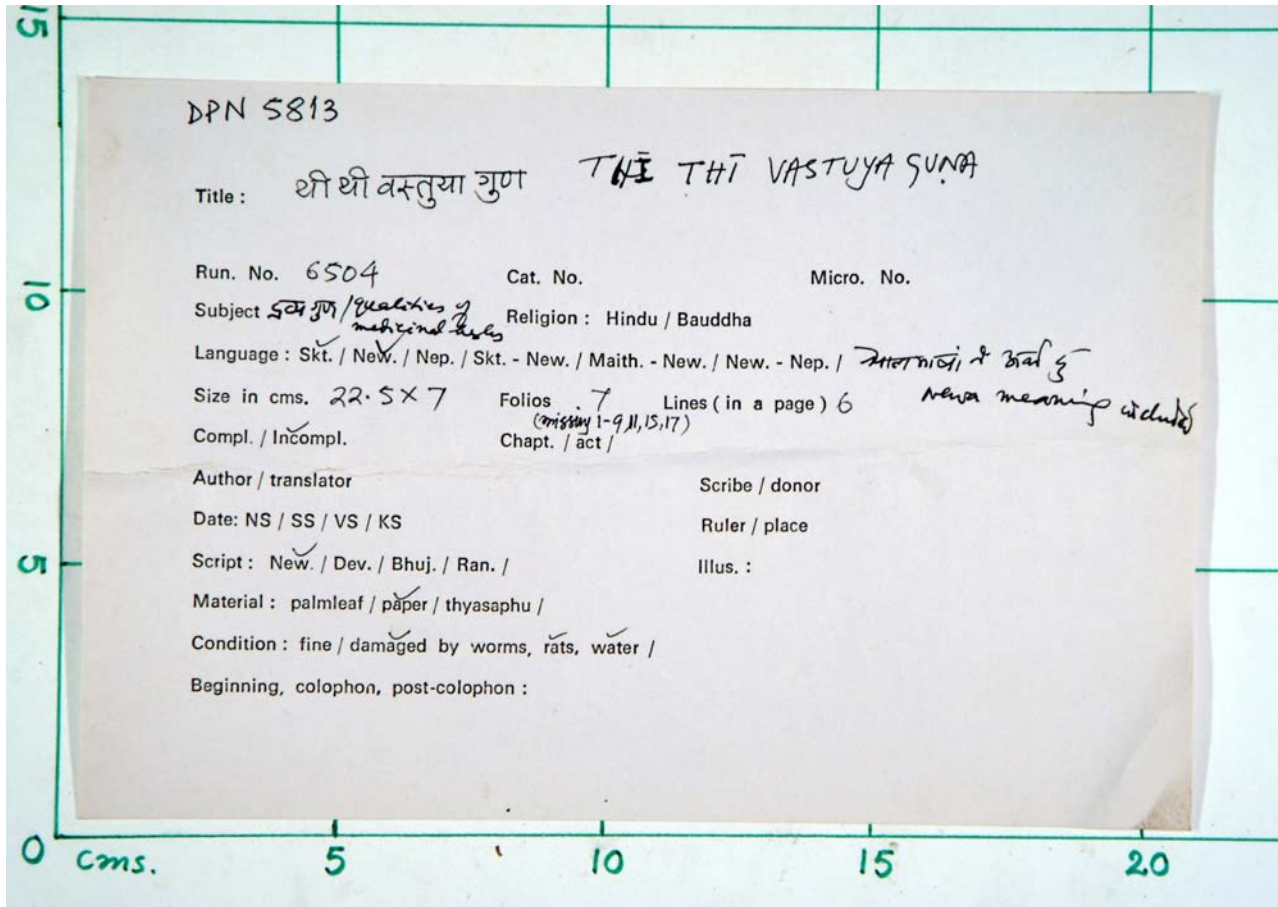 15
DPN 5813
Title : थी थी वस्तुया गुण THĪ THĪ VASTUYA GUṆA
10
Run. No. 6504 Cat. No. Micro. No.
Subject द्रव्य गुण / qualities of medicinal herbs Religion : Hindu / Bauddha
Language : Skt. / New. / Nep. / Skt. - New. / Maith. - New. / New. - Nep. /
Size in cms. 22.5 × 7 Folios 7 Lines ( in a page ) 6 Newa meaning included
(missing 1-9, 11, 15, 17)
Compl. / Incompl. Chapt. / act /
Author / translator Scribe / donor
Date: NS / SS / VS / KS Ruler / place
5
Script : New. / Dev. / Bhuj. / Ran. / Illus. :
Material : palmleaf / paper / thyasaphu /
Condition : fine / damaged by worms, rats, water /
Beginning, colophon, post-colophon :
0 Cms. 5 10 15 20